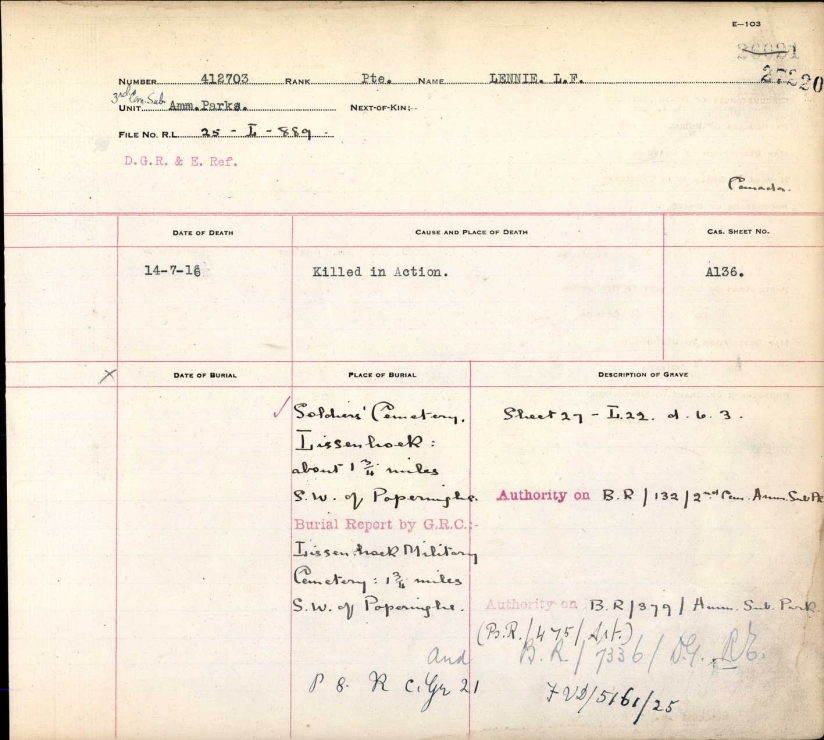 E—103
26021
27220
NUMBER 412703 RANK Pte. NAME LENNIE. L.F.
3rd Can. Sub
UNIT Amm.Parks. NEXT-OF-KIN:-
FILE No. R.L. 25 - L - 889.
D.G.R. & E. Ref.
Canada.
DATE OF DEATH CAUSE AND PLACE OF DEATH CAS. SHEET NO.
14-7-16 Killed in Action. A136.
X DATE OF BURIAL PLACE OF BURIAL DESCRIPTION OF GRAVE
✓ Soldiers' Cemetery, Sheet 27 - L.22. d. 6. 3.
Lissenhoek:
about 1 3/4 miles
S.W. of Poperinghe. Authority on B.R / 132 / 2nd Can. Amm. Sub Pk
Burial Report by G.R.C.:-
Lissenhoek Military
Cemetery: 1 3/4 miles
S.W. of Poperinghe. Authority on B.R / 379 / Amm. Sub. Park.
(B.R. / 475 / Art.)
and B.R / 7336 / D.G.
P 8. R C. Gr 21 7 VD/5161/25